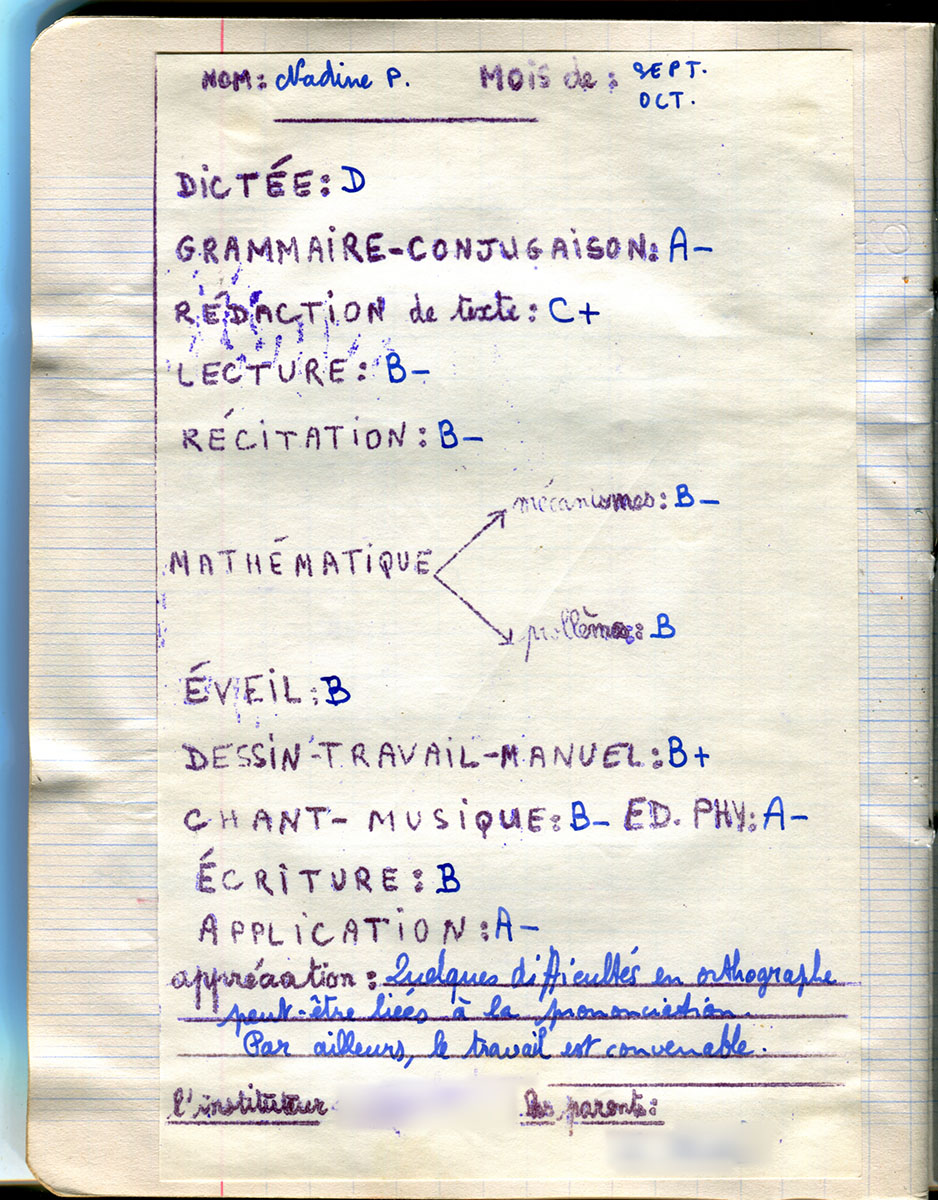 NOM: Nadine P. MOIS de: SEPT.
OCT.
DICTÉE: D
GRAMMAIRE-CONJUGAISON: A-
RÉDACTION de texte: C+
LECTURE: B-
RÉCITATION: B-
mécanismes: B-
MATHÉMATIQUE
problèmes: B
ÉVEIL: B
DESSIN-TRAVAIL-MANUEL: B+
CHANT- MUSIQUE: B- ED. PHY: A-
ÉCRITURE: B
APPLICATION: A-
appréciation: Quelques difficultés en orthographe
peut-être liées à la prononciation.
Par ailleurs, le travail est convenable.
l'instituteur Les parents: